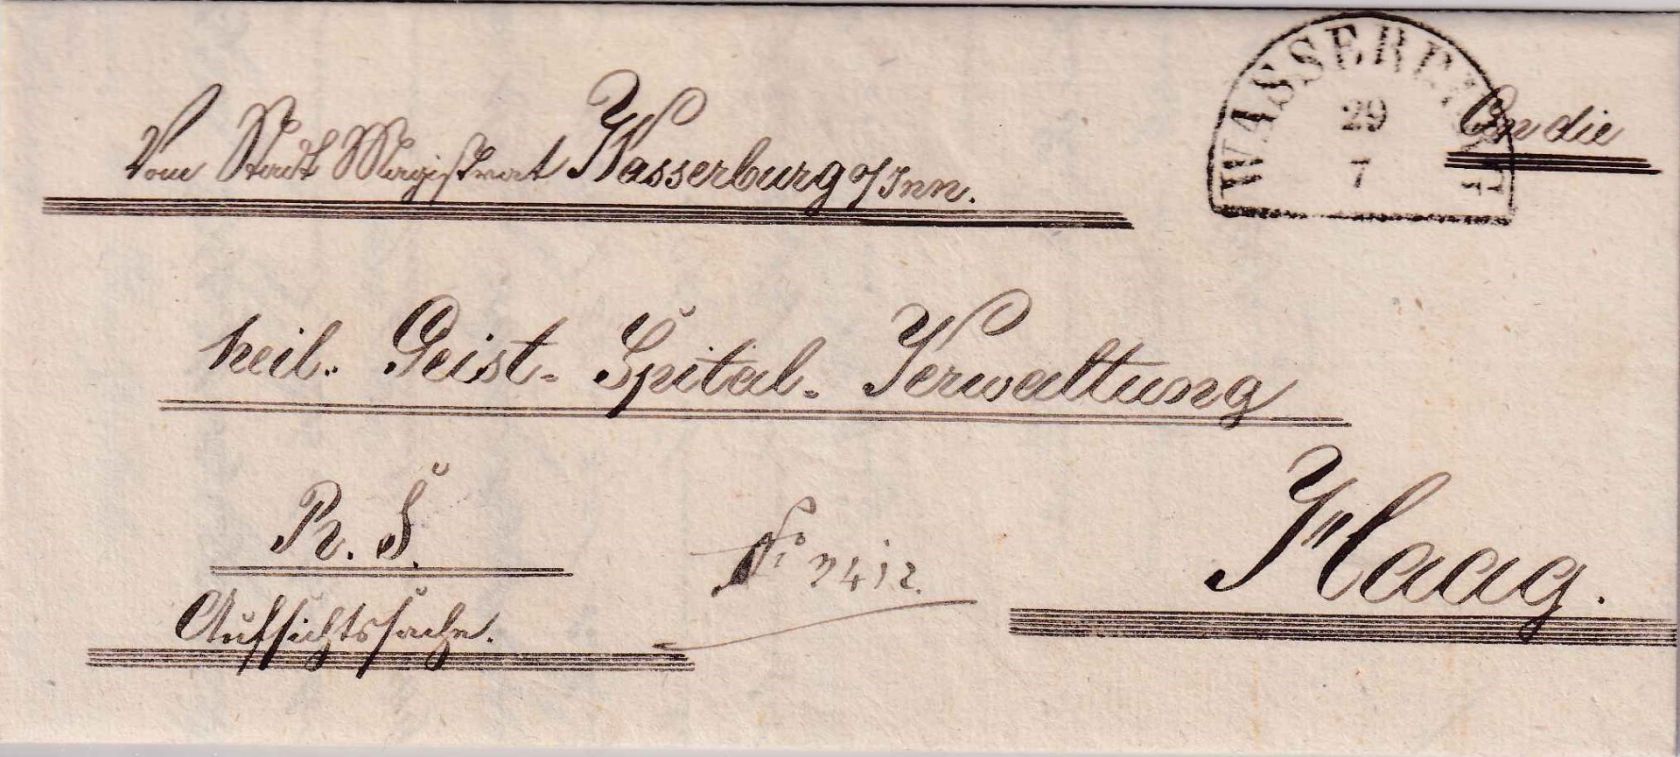 WASSERBURG
29
7
An die
Vom Stadt Magistrat Wasserburg a/Inn.
heil. Geist- Spital- Verwaltung
R. S.
Haag.
No 2412.
Aufsichtssache.